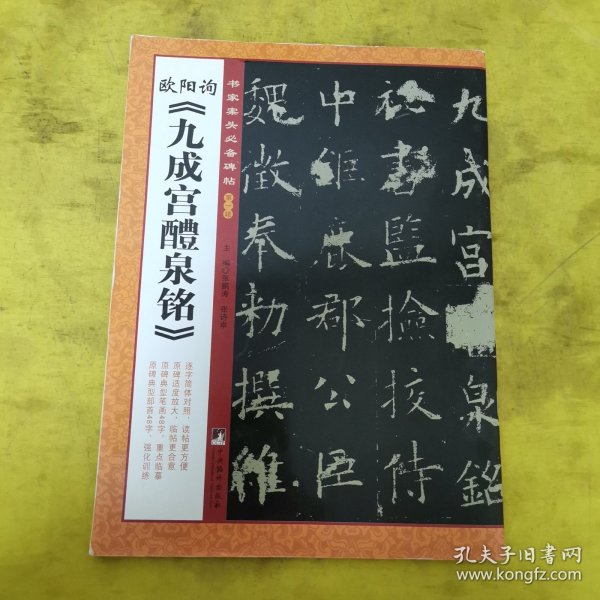 欧阳询
《九成宫醴泉铭》
书家案头必备碑帖
第一辑
主 编◎张鹏涛 张诗卓
逐字简体对照，读帖更方便
原碑适度放大，临帖更合意
原碑典型笔画48字，重点临摹
原碑典型部首48字，强化训练
中央编译出版社
九成宫
泉銘
秘書監撿挍侍
中鉅鹿郡公臣
魏徵奉勑撰維
孔夫子旧书网
www.kongfz.com